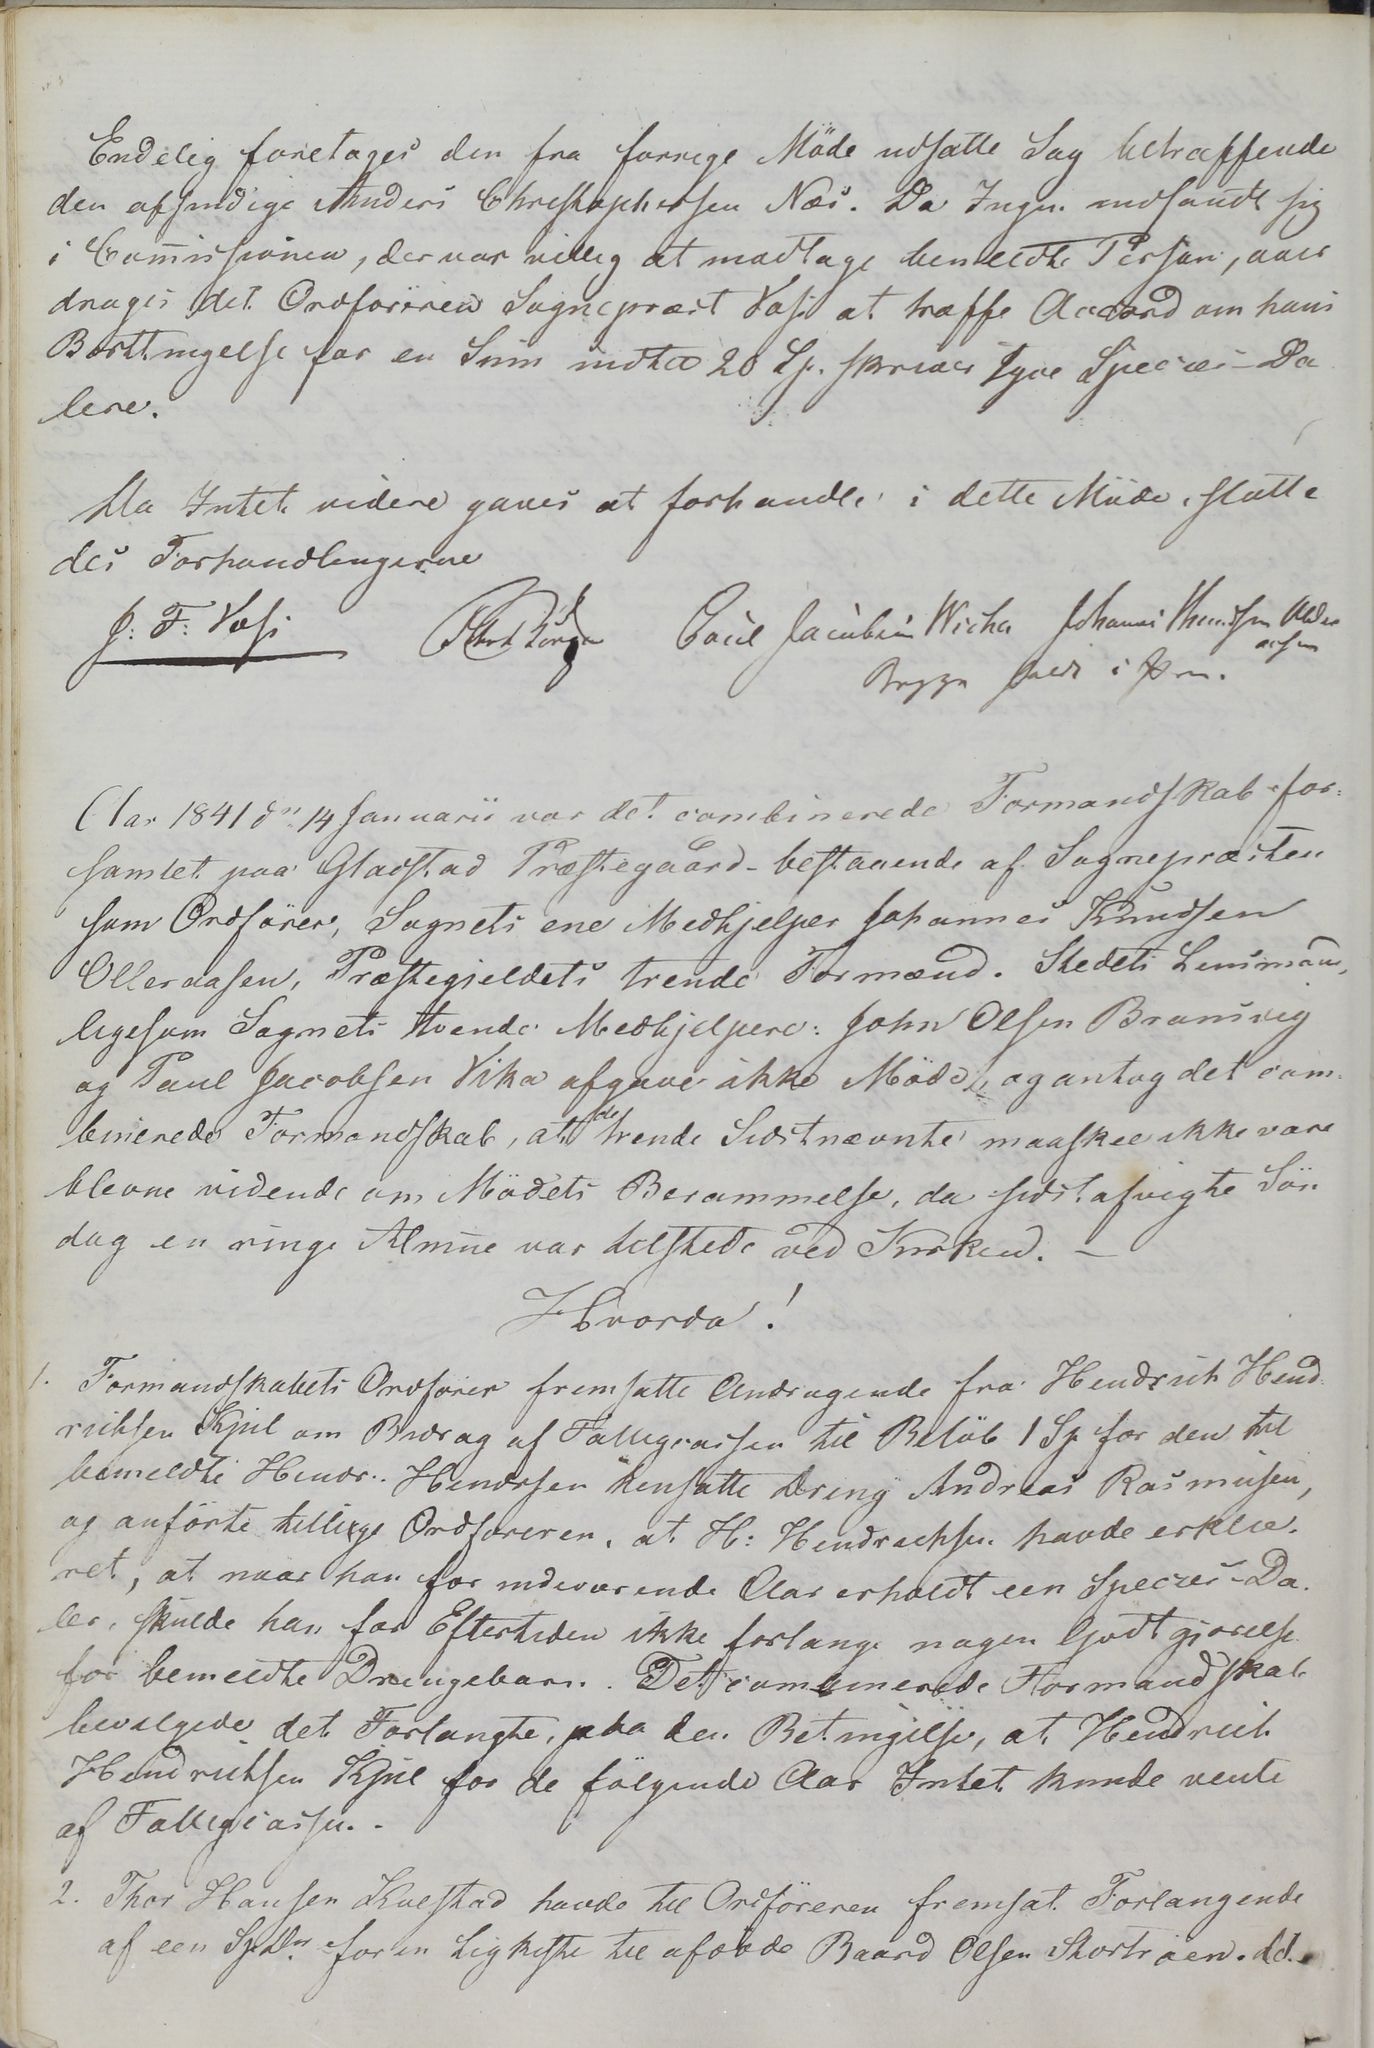 Endelig foretages den fra forrige Möde udsatte Sag betræffende
den afsindige Anders Christophersen Næs. Da Ingen indfandt sig
i Commissionen, der var villig at modtage bemeldte Person, over
drages det Ordföreren Sognepræst Vosz at træffe Accord om hans
Borttingelse for en Sum indtil 20 Sp. skriver tyve Species-Da
lere.
Da Intet videre gaves at forhandle i dette Möde, slutte
des Forhandlingerne
J: F: Vosz Paul Jacobsen Wicka Johannes Knudsen Older
aasen
Brygge Field i Pen.
Aar 1841 dn 14 Januarii var det combinerede Formandskab for-
samlet paa Gladstad Præstegaard - bestaaende af Sognepræsten
som Ordförer, Sognets ene Medhjelper Johannes Knudsen
Olleraasen, Præstegjeldets trende Formænd. Stedets Lensmand,
ligesom Sognets tvende Medhjelpere: John Olsen Bransvig
og Paul Jacobsen Vika afgave ikke Möde, og antog det com-
binerede Formandskab, at de trende Sidstnævnte maaskee ikke vare
blevne vidende om Mödets Berammelse, da sidstafvigte Sön
dag en ringe Almue var tilstede ved Kirken. -
Hvorda!
1. Formandskabets Ordförer fremsatte Andragende fra Hendrich Hend
richsen Kjul om Bidrag af Fattigcassen til Belöb 1 Sp for den til
bemeldte Hendr. Hendrsen hensatte Dreng Andreas Rasmusen,
og anförte tillige Ordföreren, at H: Hendrichsen havde erklæ-
ret, at naar han for indeværende Aar erholdt een Species-Da-
ler, skulde han for Eftertiden ikke forlange nogen Godtgjörelse
for bemeldte Drengebarn. Det combinerede Formandskab
bevilgede det Forlangte, paa den Betingelse, at Hendrich
Hendrichsen Kjul for de fölgende Aar Intet kunde vente
af Fattigcassen. -
2. Thor Hansen Kvestad havde til Ordföreren fremsat Forlangende
af een SpDlr for en Ligkiste til afdöde Baard Olsen Skortraaen. dd.